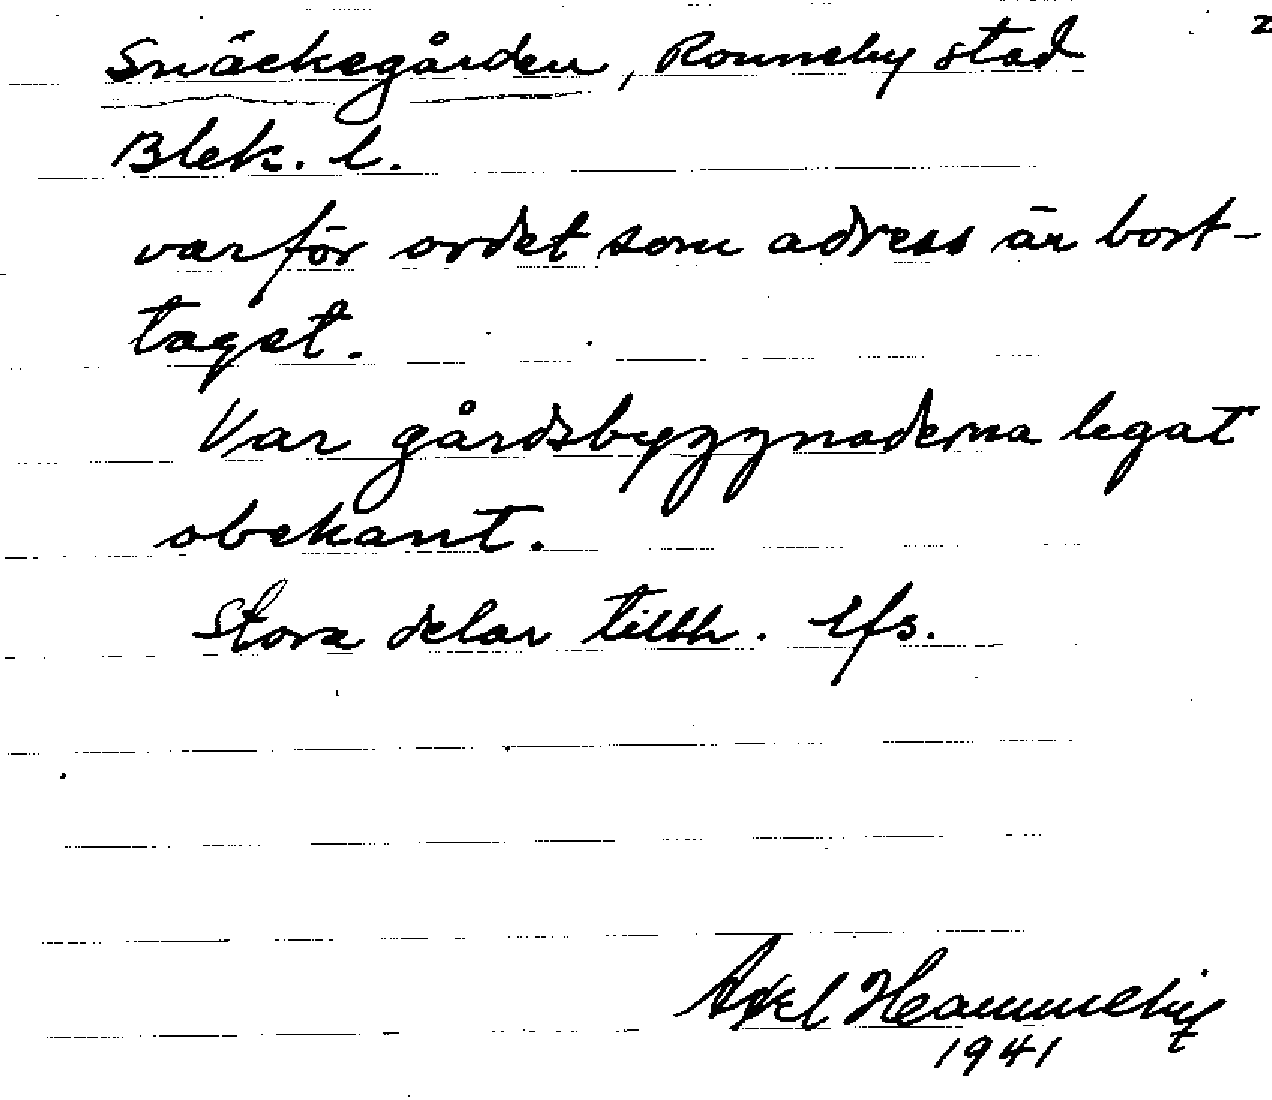 2
Snäckegården, Ronneby stad
Blek. l.
varför ordet som adress är bort-
taget.
Var gårdsbyggnaderna legat
obekant.
Stora delar tillh. lfs.
Axel
1941